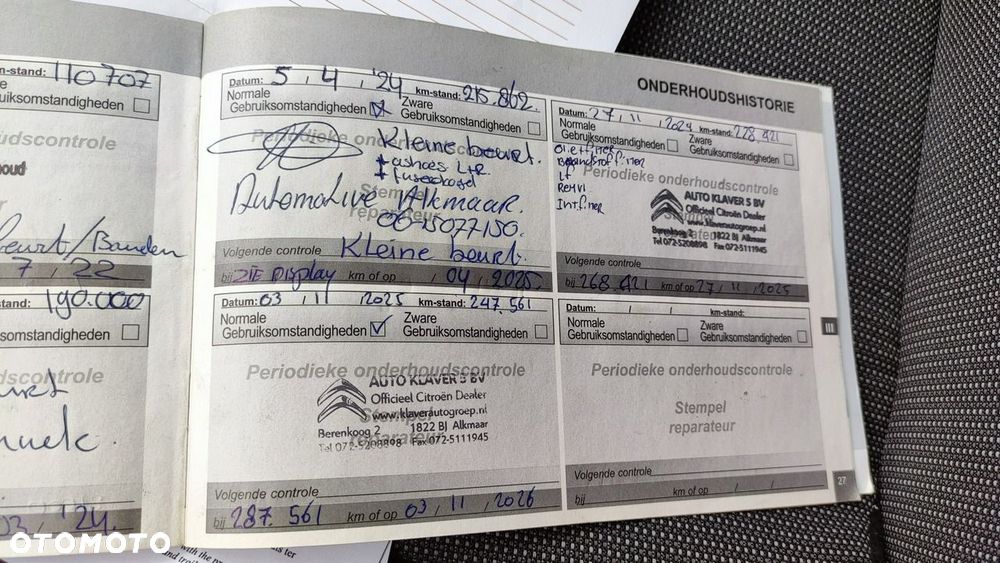 ONDERHOUDSHISTORIE
m-stand: 110707
uiksomstandigheden
udscontrole
oud
eurt/Banden
7 , 22
tand: 190.000
somstandigheden
dscontrole
urt
03 , '24.
Datum: 5 , 4 , '24 km-stand: 215.862.
Normale
Gebruiksomstandigheden
Zware
Gebruiksomstandigheden
Periodieke onderhoudscontrole
Kleine beurt.
Automotive Alkmaar.
Stempel
reparateur
06-15077150.
Volgende controle Kleine beurt.
bij ZIE Display km of op , 04 , 2025.
Datum: 27 , 11 , 2024 km-stand: 228.421
Normale
Gebruiksomstandigheden
Zware
Gebruiksomstandigheden
Periodieke onderhoudscontrole
Stempel
reparateur
AUTO KLAVER 5 BV
Officieel Citroën Dealer
www.klaverautogroep.nl
Berenkoog 2 1822 BJ Alkmaar
Tel 072-5208898 Fax 072-5111945
Volgende controle
bij 268.421 km of op 27 , 11 , 2025
Datum: 03 , 11 , 2025 km-stand: 247.561
Normale
Gebruiksomstandigheden
Zware
Gebruiksomstandigheden
Periodieke onderhoudscontrole
AUTO KLAVER 5 BV
Officieel Citroën Dealer
www.klaverautogroep.nl
Berenkoog 2 1822 BJ Alkmaar
Tel 072-5208898 Fax 072-5111945
Volgende controle
bij 287.561 km of op 03 , 11 , 2026
Datum: / / km-stand:
Normale
Gebruiksomstandigheden
Zware
Gebruiksomstandigheden
Periodieke onderhoudscontrole
Stempel
reparateur
Volgende controle
bij km of op / /
III
27
OTOMOTO